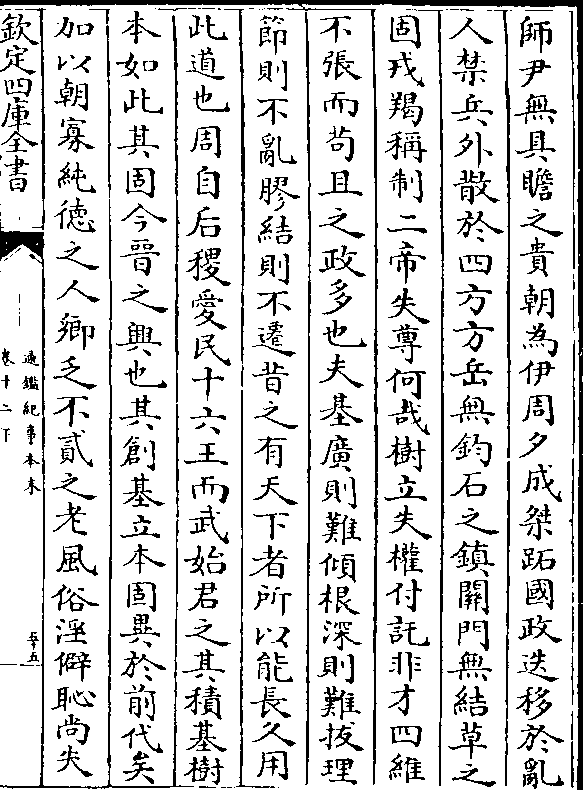 師尹無具瞻之貴朝為伊周夕成桀跖國政迭移於亂
人禁兵外散於四方方岳無鈞石之鎮關門無結草之
固戎羯稱制二帝失尊何哉樹立失權付託非才四維
不張而苟且之政多也夫基廣則難傾根深則難拔理
節則不亂膠結則不遷昔之有天下者所以能長久用
此道也周自后稷愛民十六王而武始君之其積基樹
本如此其固今晉之興也其創基立本固異於前代矣
加以朝寡純徳之人鄉乏不貳之老風俗淫僻恥尚失
欽定四庫全書
通鑑紀事本末
卷十二下
五十五